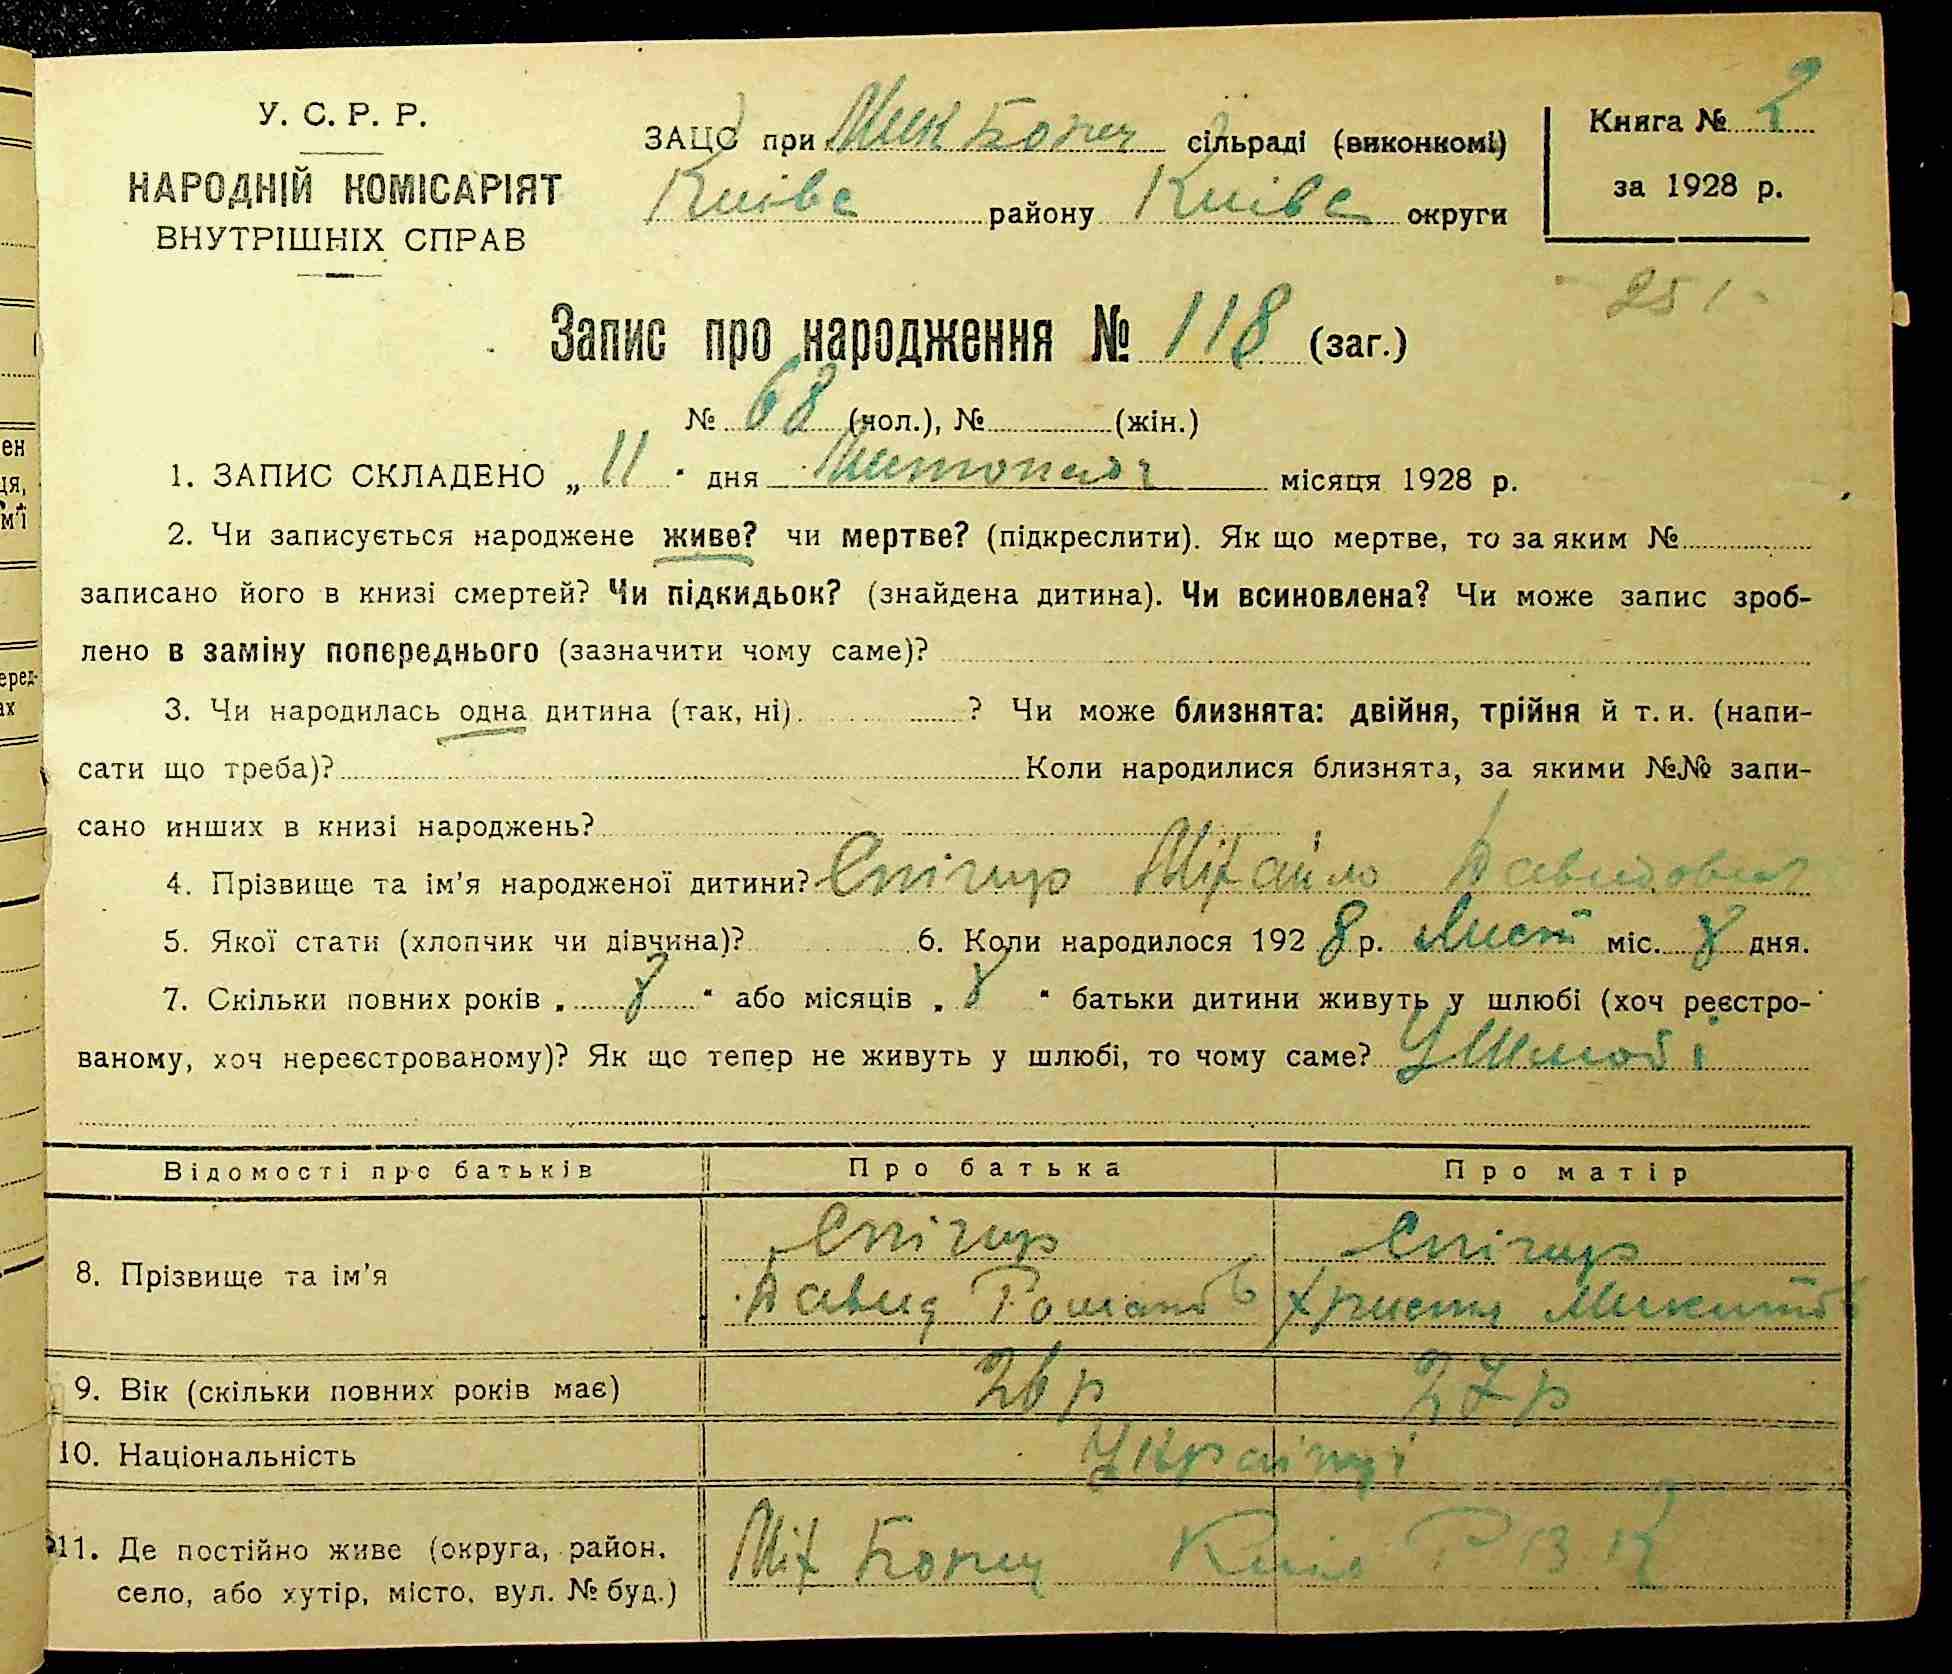 У. С. Р. Р.
НАРОДНІЙ КОМІСАРІЯТ
ВНУТРІШНІХ СПРАВ
ЗАЦС при Мик Борщ сільраді (виконкомі)
Київс району Київс округи
Книга № 2
за 1928 р.
251
Запис про народження № 118 (заг.)
№ 68 (чол.), № (жін.)
1. ЗАПИС СКЛАДЕНО „ 11 " дня Листопада місяця 1928 р.
2. Чи записується народжене живе? чи мертве? (підкреслити). Як що мертве, то за яким №
записано його в книзі смертей? Чи підкидьок? (знайдена дитина). Чи всиновлена? Чи може запис зроб-
лено в заміну попереднього (зазначити чому саме)?
3. Чи народилась одна дитина (так, ні) ? Чи може близнята: двійня, трійня й т. и. (напи-
сати що треба)? Коли народилися близнята, за якими №№ запи-
сано инших в книзі народжень?
4. Прізвище та ім'я народженої дитини? Снігир Міхайло Давидович
5. Якої стати (хлопчик чи дівчина)? 6. Коли народилося 192 8 р. Лист міс. 8 дня.
7. Скільки повних років „ 8 " або місяців „ 8 " батьки дитини живуть у шлюбі (хоч реєстро-
ваному, хоч нереєстрованому)? Як що тепер не живуть у шлюбі, то чому саме? У Шлюбі
Відомості про батьків Про батька Про матір
8. Прізвище та ім'я
Снігир Снігир
Давид Романов Христя Микитов
9. Вік (скільки повних років має) 26 р 27 р
10. Національність Українці
11. Де постійно живе (округа, район,
село, або хутір, місто, вул. № буд.)
Міх Борщ Київ Р В К